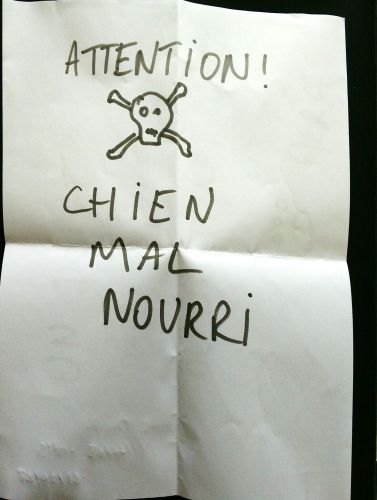 ATTENTION!
CHIEN
MAL
NOURRI